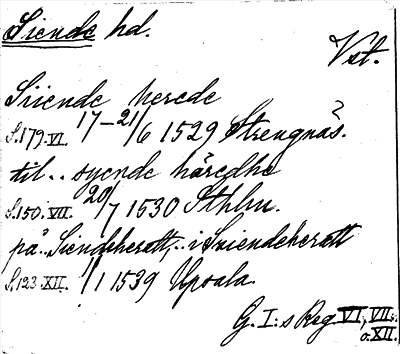 Siende hd.
Vst.
Siiende herede
S.179.VI. 17–21/6 1529 Strengnäs.?
til.. syende häredhe
S.150.VII. 20/7 1530 Sthlm.
på.. Siendeheratt,.. i Sziendeheratt
S.123.XII. 1/1 1539 Upsala
G. I:s Reg. VI, VII.
o. XII.